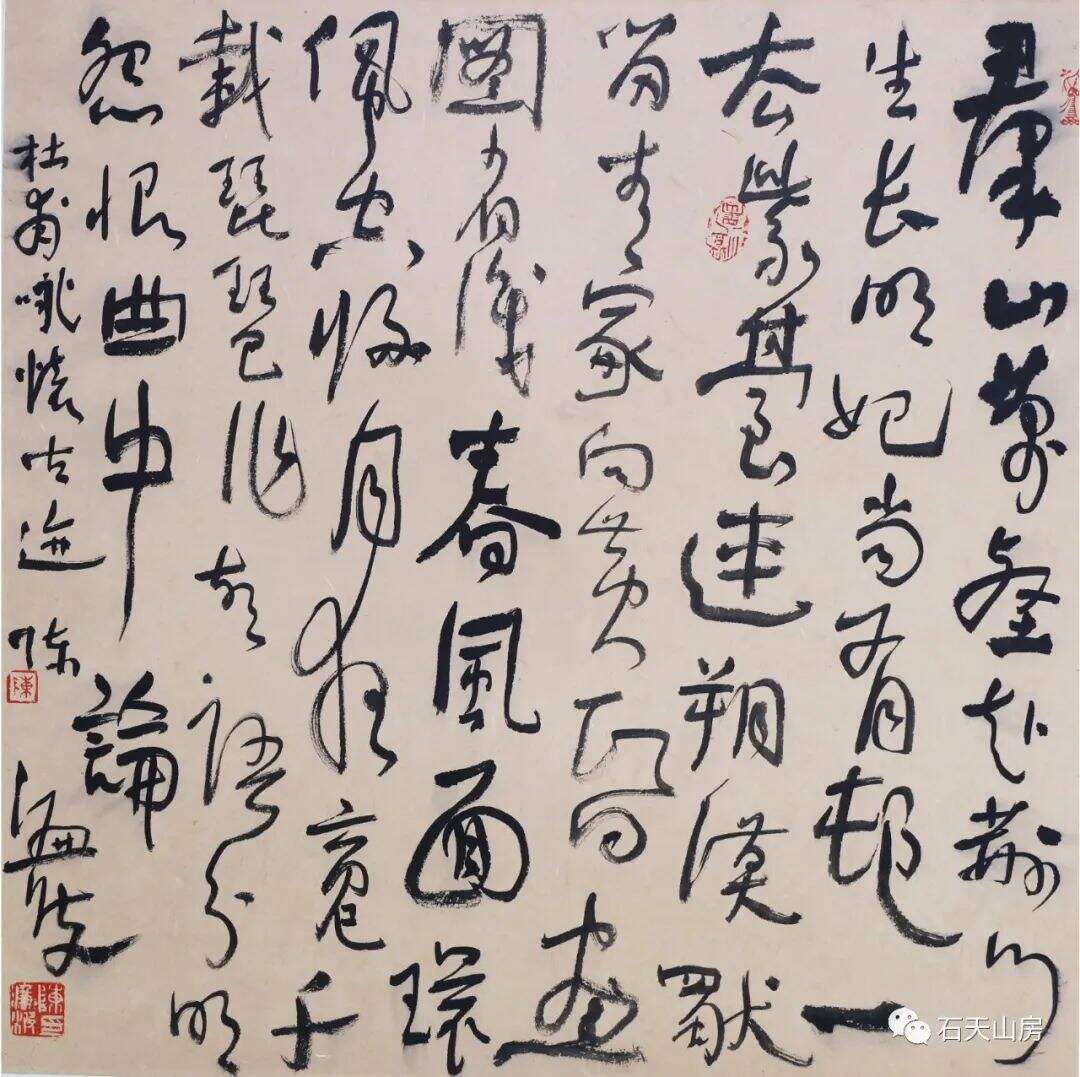 羣山萬壑赴荊門
生長明妃尚有邨一
去紫臺連朔漠獨
留青冢向黃昏畫
圖省識春風面環
佩空歸月夜魂千
載琵琶作胡語分明
怨恨曲中論
杜甫詠懷古迹 陳
陳
石天山房